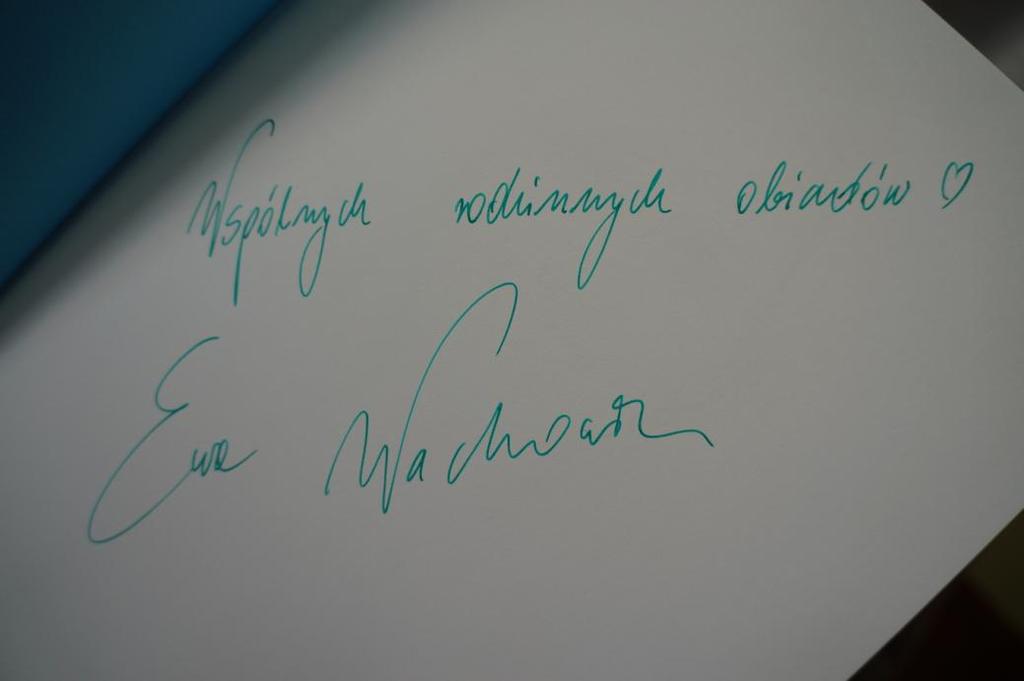 Wspólnych rodzinnych obiadów ♡
Ewa Wachowicz